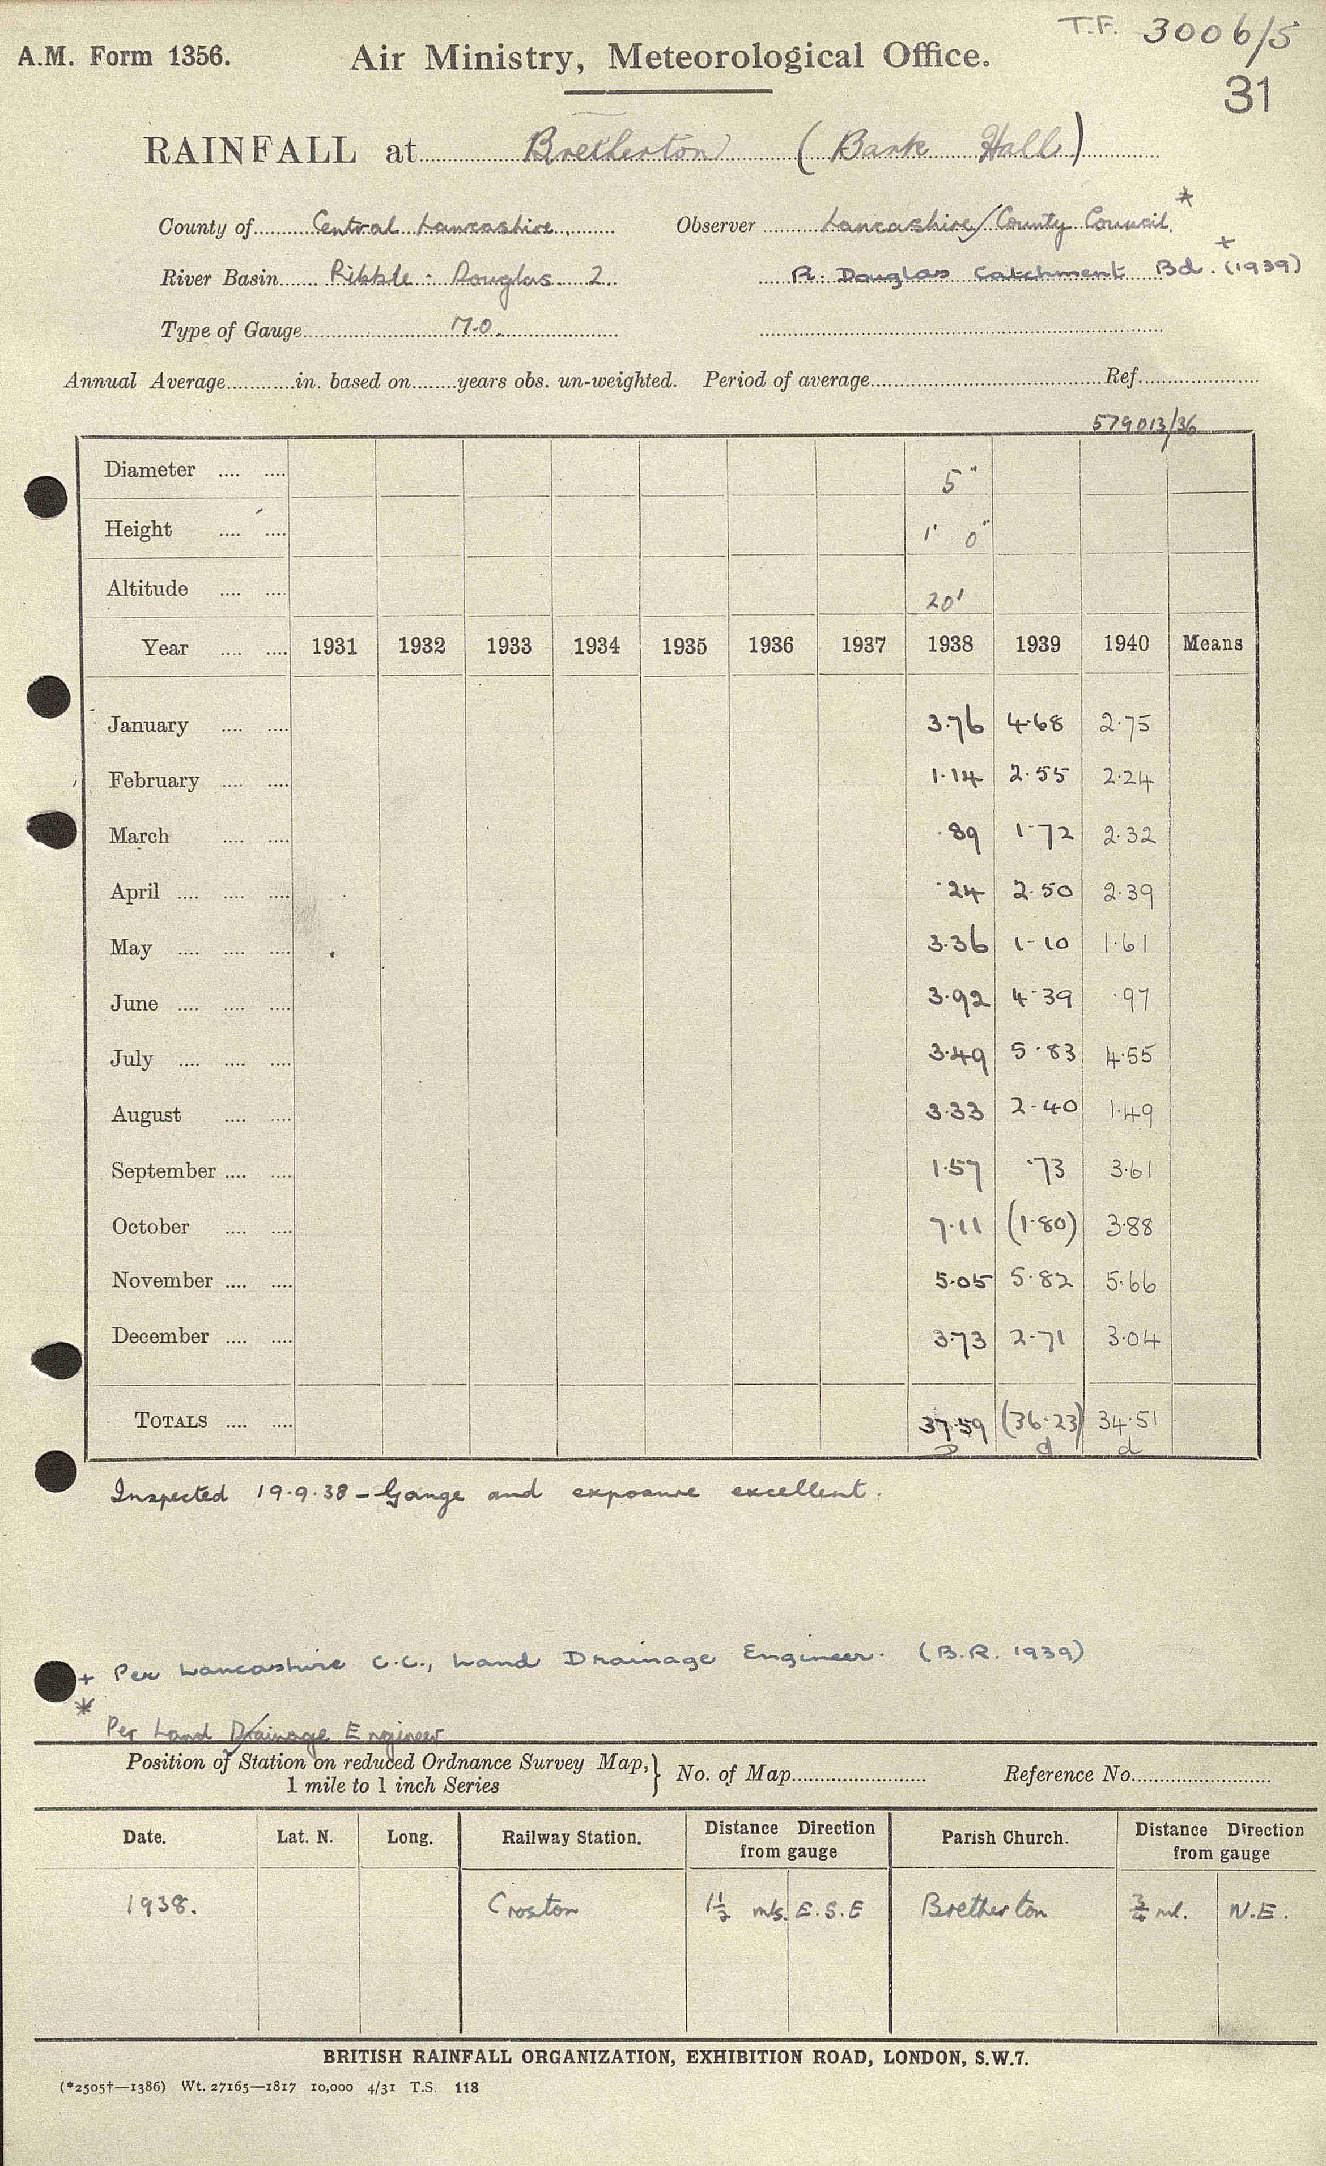 T.F. 3006/5
A.M. Form 1356. Air Ministry, Meteorological Office.
31
RAINFALL at Bretherton (Bank Hall)
County of Central Lancashire. Observer Lancashire County Council *
River Basin Ribble : Douglas 2. R. Douglas Catchment Bd. + (1939)
Type of Gauge M.O.
Annual Average in. based on years obs. un-weighted. Period of average Ref.
579013/36
Diameter .... .... 5"
Height .... .... 1' 0"
Altitude .... .... 20'
Year .... .... 1931 1932 1933 1934 1935 1936 1937 1938 1939 1940 Means
January .... .... 3.76 4.68 2.75
February .... .... 1.14 2.55 2.24
March .... .... .89 1.72 2.32
April .... .... .... .24 2.50 2.39
May .... .... .... 3.36 1.10 1.61
June .... .... .... 3.92 4.39 .97
July .... .... .... 3.49 5.83 4.55
August .... .... 3.33 2.40 1.49
September .... .... 1.57 .73 3.61
October .... .... 7.11 (1.80) 3.88
November .... .... 5.05 5.82 5.66
December .... .... 3.73 2.71 3.04
TOTALS .... .... 37.59 (36.23) 34.51
d d
Inspected 19.9.38 - Gauge and exposure excellent.
+ Per Lancashire C.C., Land Drainage Engineer. (B.R. 1939)
*
Per Land Drainage Engineer
Position of Station on reduced Ordnance Survey Map, } No. of Map Reference No.
1 mile to 1 inch Series
Date. Lat. N. Long. Railway Station. Distance Direction from gauge Parish Church. Distance Direction from gauge
1938. Croston 1½ mls. E.S.E Bretherton ¾ ml. N.E.
BRITISH RAINFALL ORGANIZATION, EXHIBITION ROAD, LONDON, S.W.7.
(*2505†—1386) Wt. 27165—1817 10,000 4/31 T.S. 118